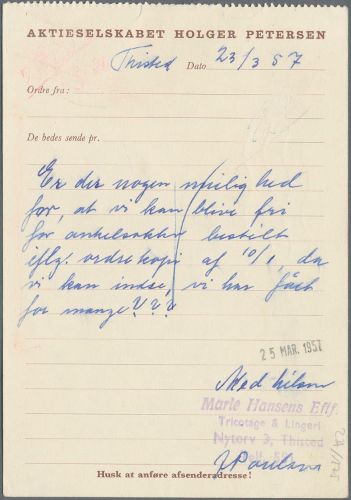 AKTIESELSKABET HOLGER PETERSEN
Thisted Dato 23/3 57
Ordre fra:
De bedes sende pr.
Er der nogen mulighed
for, at vi kan blive fri
for ankelsokker bestilt
iflg. ordrekopi af 10/1, da
vi kan indse, vi har fået
for mange???
25 MAR. 1957
Med hilsen
Marie Hansens Eftf.
Tricotage & Lingeri
Nytorv 3, Thisted
J Poulsen
Husk at anføre afsenderadresse!